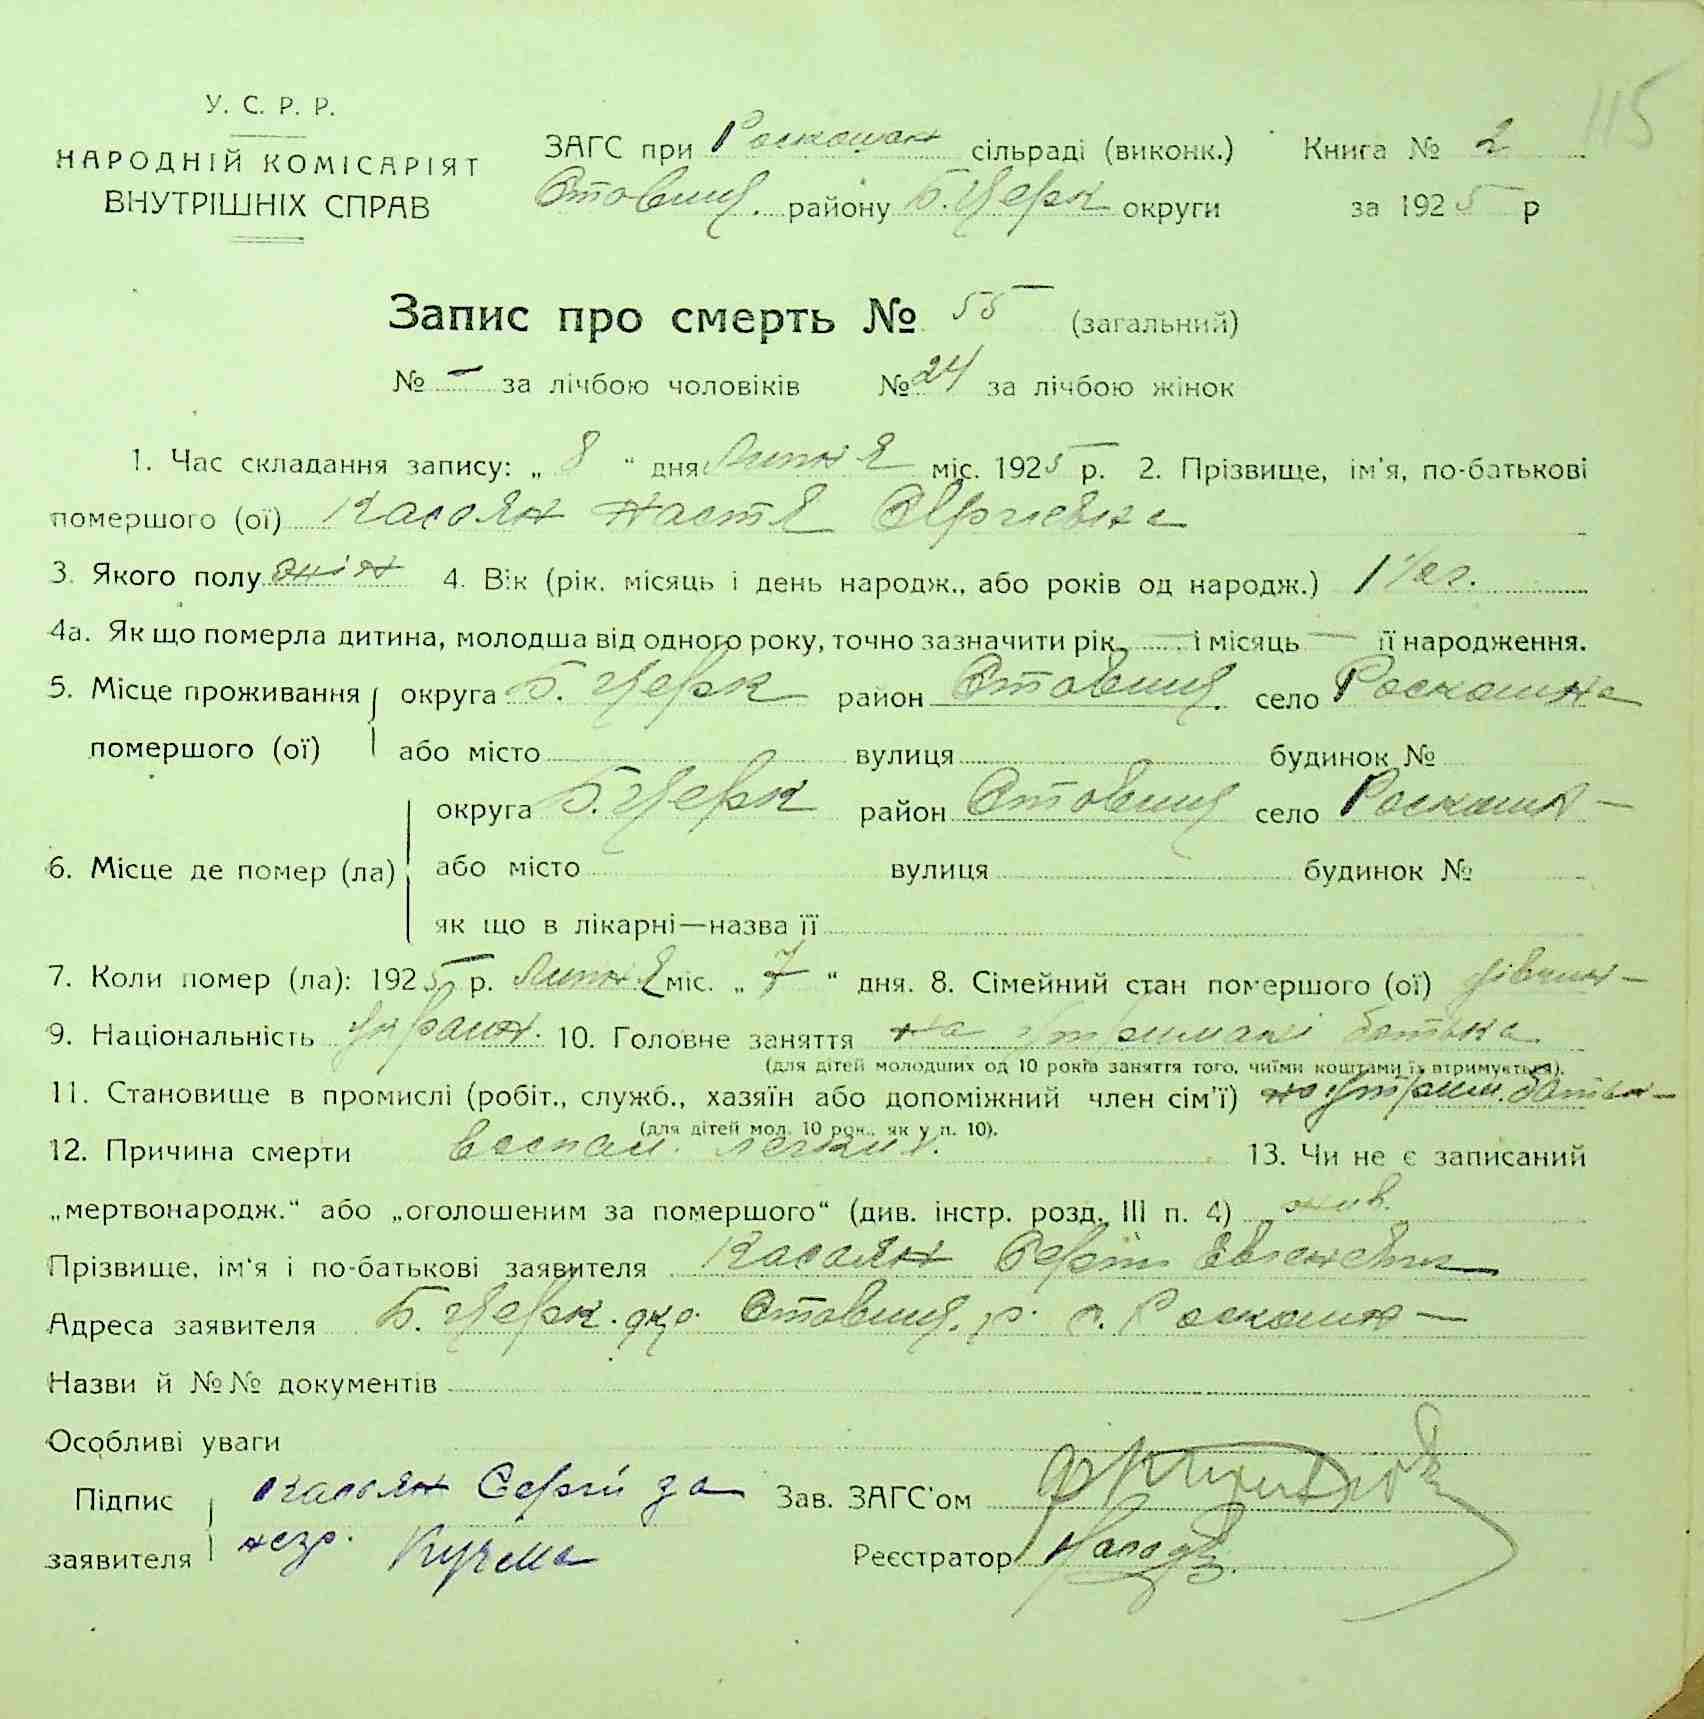 115
У. С. Р. Р.
НАРОДНІЙ КОМІСАРІЯТ
ВНУТРІШНІХ СПРАВ
ЗАГС при Роскошан сільраді (виконк.) Книга № 2
Ставищ. району Б. Церк округи за 1925 р
Запис про смерть № 55 (загальний)
№ – за лічбою чоловіків № 24 за лічбою жінок
1. Час складання запису: „ 8 “ дня Липня міс. 1925 р. 2. Прізвище, ім'я, по-батькові
помершого (ої) Касоян Настя Сергієвна
3. Якого полу жін 4. Вік (рік. місяць і день народж., або років од народж.) 1
4а. Як що померла дитина, молодша від одного року, точно зазначити рік — і місяць — її народження.
5. Місце проживання помершого (ої) округа Б. Церк район Ставищ. село Роскошна
або місто вулиця будинок №
6. Місце де помер (ла) округа Б. Церк район Ставищ село Роскошн–
або місто вулиця будинок №
як що в лікарні—назва її
7. Коли помер (ла): 1925 р. Липня міс. „ 7 “ дня. 8. Сімейний стан помершого (ої) дівчин–
9. Національність Украин. 10. Головне заняття на утримані батька
(для дітей молодших од 10 років заняття того, чиїми коштами їх втримується).
11. Становище в промислі (робіт., служб., хазяїн або допоміжний член сім'ї) на утрим. батьк–
(для дітей мол. 10 рок., як у п. 10).
12. Причина смерти воспал. легких. 13. Чи не є записаний
„мертвонародж.“ або „оголошеним за помершого“ (див. інстр. розд. III п. 4)
Прізвище, ім'я і по-батькові заявителя Касоян Сергій Евгенович
Адреса заявителя Б. Церк. окр. Ставищ. р. с. Роскошн–
Назви й №№ документів
Особливі уваги
Підпис Касоян Сергій за Зав. ЗАГС'ом
заявителя незр. Кучма Реєстратор